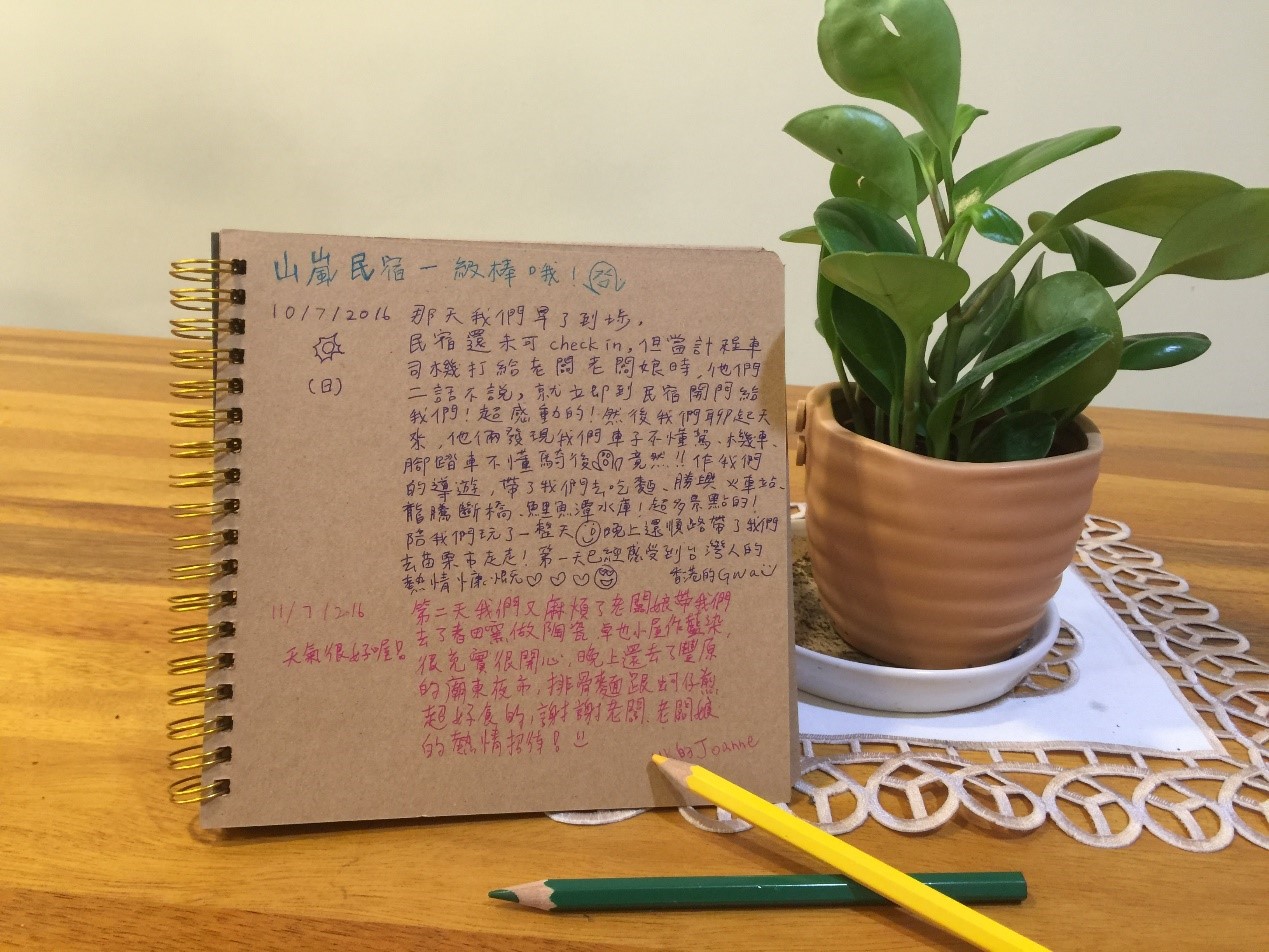 山嵐民宿一級棒哦!
10/7/2016 那天我們早了到步,
民宿還未可 check in, 但當計程車
(日) 司機打給老闆老闆娘時, 他們
二話不說, 就立即到民宿開門給
我們! 超感動的! 然後我們聊起天
來, 他倆發現我們車子不懂駕、機車、
腳踏車不懂騎後 竟然!! 作我們
的導遊, 帶了我們去吃麵、勝興火車站、
龍騰斷橋、鯉魚潭水庫! 超多景點的!
陪我們玩了一整天 晚上還順路帶了我們
去苗栗市走走! 第一天已經感受到台灣人的
熱情慷慨♡♡♡ 香港的Gwai
11/7/2016 第二天我們又麻煩了老闆娘帶我們
去了春田窯做陶瓷 卓也小屋作藍染,
天氣很好喔! 很充實很開心, 晚上還去了豐原
的廟東夜市, 排骨麵跟蚵仔煎
超好食的, 謝謝老闆、老闆娘
的熱情招待!
的Joanne